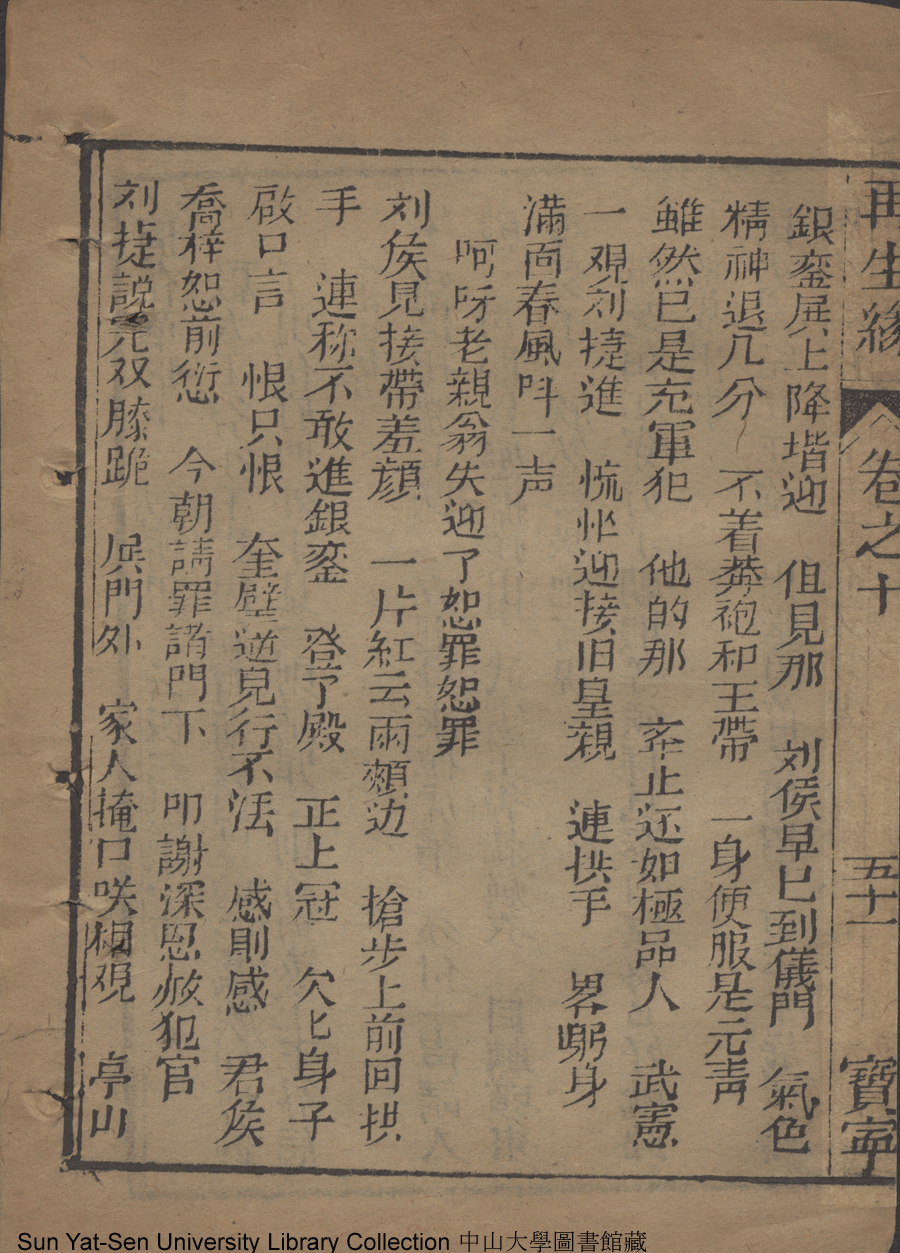 再生緣 卷之十 五十一 寶寧
銀鑾殿上降堦迎 但見那 刘侯早已到儀門 氣色
精神退几分 不着莽袍和王帶 一身便服是元青
雖然已是充軍犯 他的那 牽止还如極品人 武憲
一覌刘捷進 慌忙迎接旧皇親 連拱手 畧躬身
滿面春風呌一声
呵呀老親翁失迎了恕罪恕罪
刘侯見接帶羞顔 一片紅云両頰边 搶步上前回拱
手 連称不敢進銀鑾 登了殿 正上冠 欠匕身子
啟口言 恨只恨 奎璧逆見行不法 感則感 君侯
喬梓恕前愆 今朝請罪諸門下 叩謝深恩赦犯官
刘捷説完双膝跪 屏門外 家人掩口咲相覌 亭山
Sun Yat-Sen University Library Collection 中山大學圖書館藏